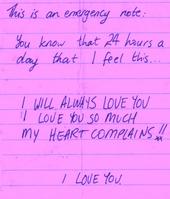 This is an emergency note:
You know that 24 hours a
day that I feel this...
I WILL ALWAYS LOVE YOU
I LOVE YOU SO MUCH
MY HEART COMPLAINS!!
I LOVE YOU.